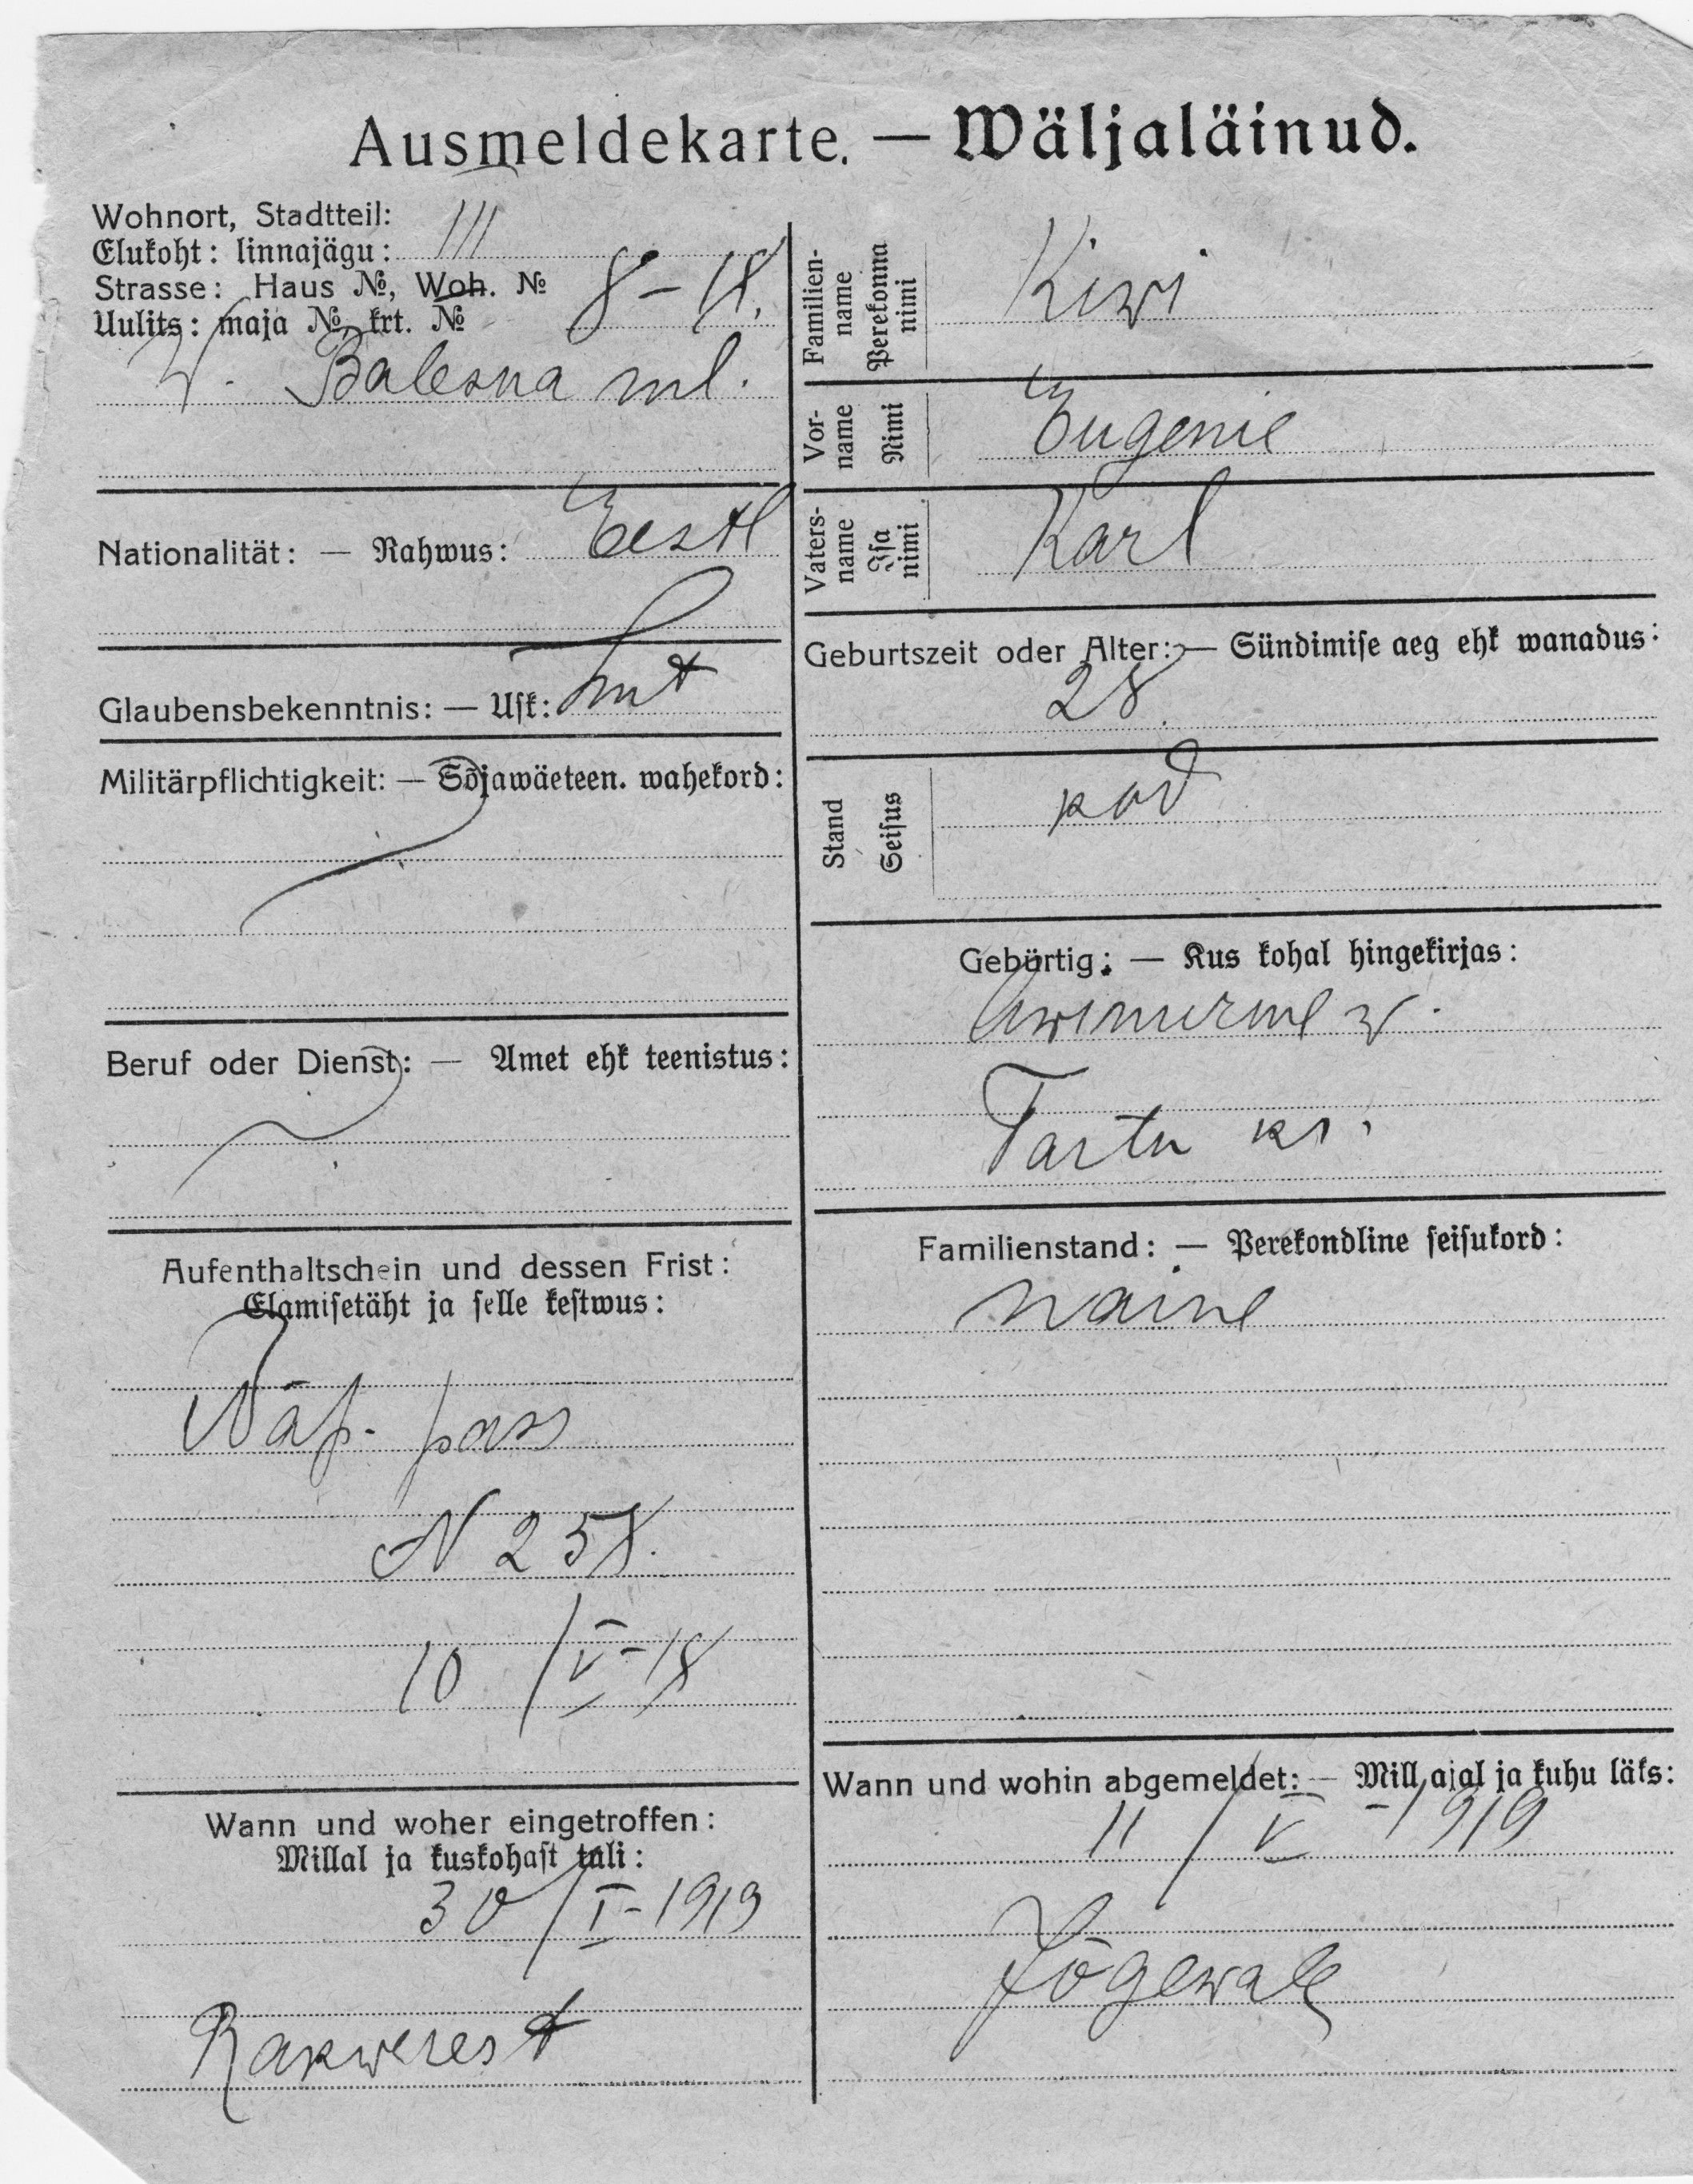 Ausmeldekarte. — Wäljaläinud.
Wohnort, Stadtteil:
Elukoht: linnajägu: III
Strasse: Haus №, Woh. №
Uulits: maja №, krt. № 8-18.
W. Balesna ml.
Nationalität: — Rahwus: Eestl
Glaubensbekenntnis: — Usk: Lut
Militärpflichtigkeit: — Sõjawäeteen. wahekord:
Beruf oder Dienst: — Amet ehk teenistus:
Aufenthaltschein und dessen Frist:
Elamisetäht ja selle kestwus:
pass
N 258.
10/V-18
Wann und woher eingetroffen:
Millal ja kuskohast tuli:
30/I-1919
Rakwerest
Familien-
name
Perekonna
nimi
Kiwi
Vor-
name
Nimi
Eugenie
Vaters-
name
Isa
nimi
Karl
Geburtszeit oder Alter: — Sündimise aeg ehk wanadus:
28.
Stand
Seisus
kod
Gebürtig: — Kus kohal hingekirjas:
Awinurme w.
Tartu kr.
Familienstand: — Perekondline seisukord:
naine
Wann und wohin abgemeldet: — Mill, ajal ja kuhu läks:
11/V-1919
Jõgewale